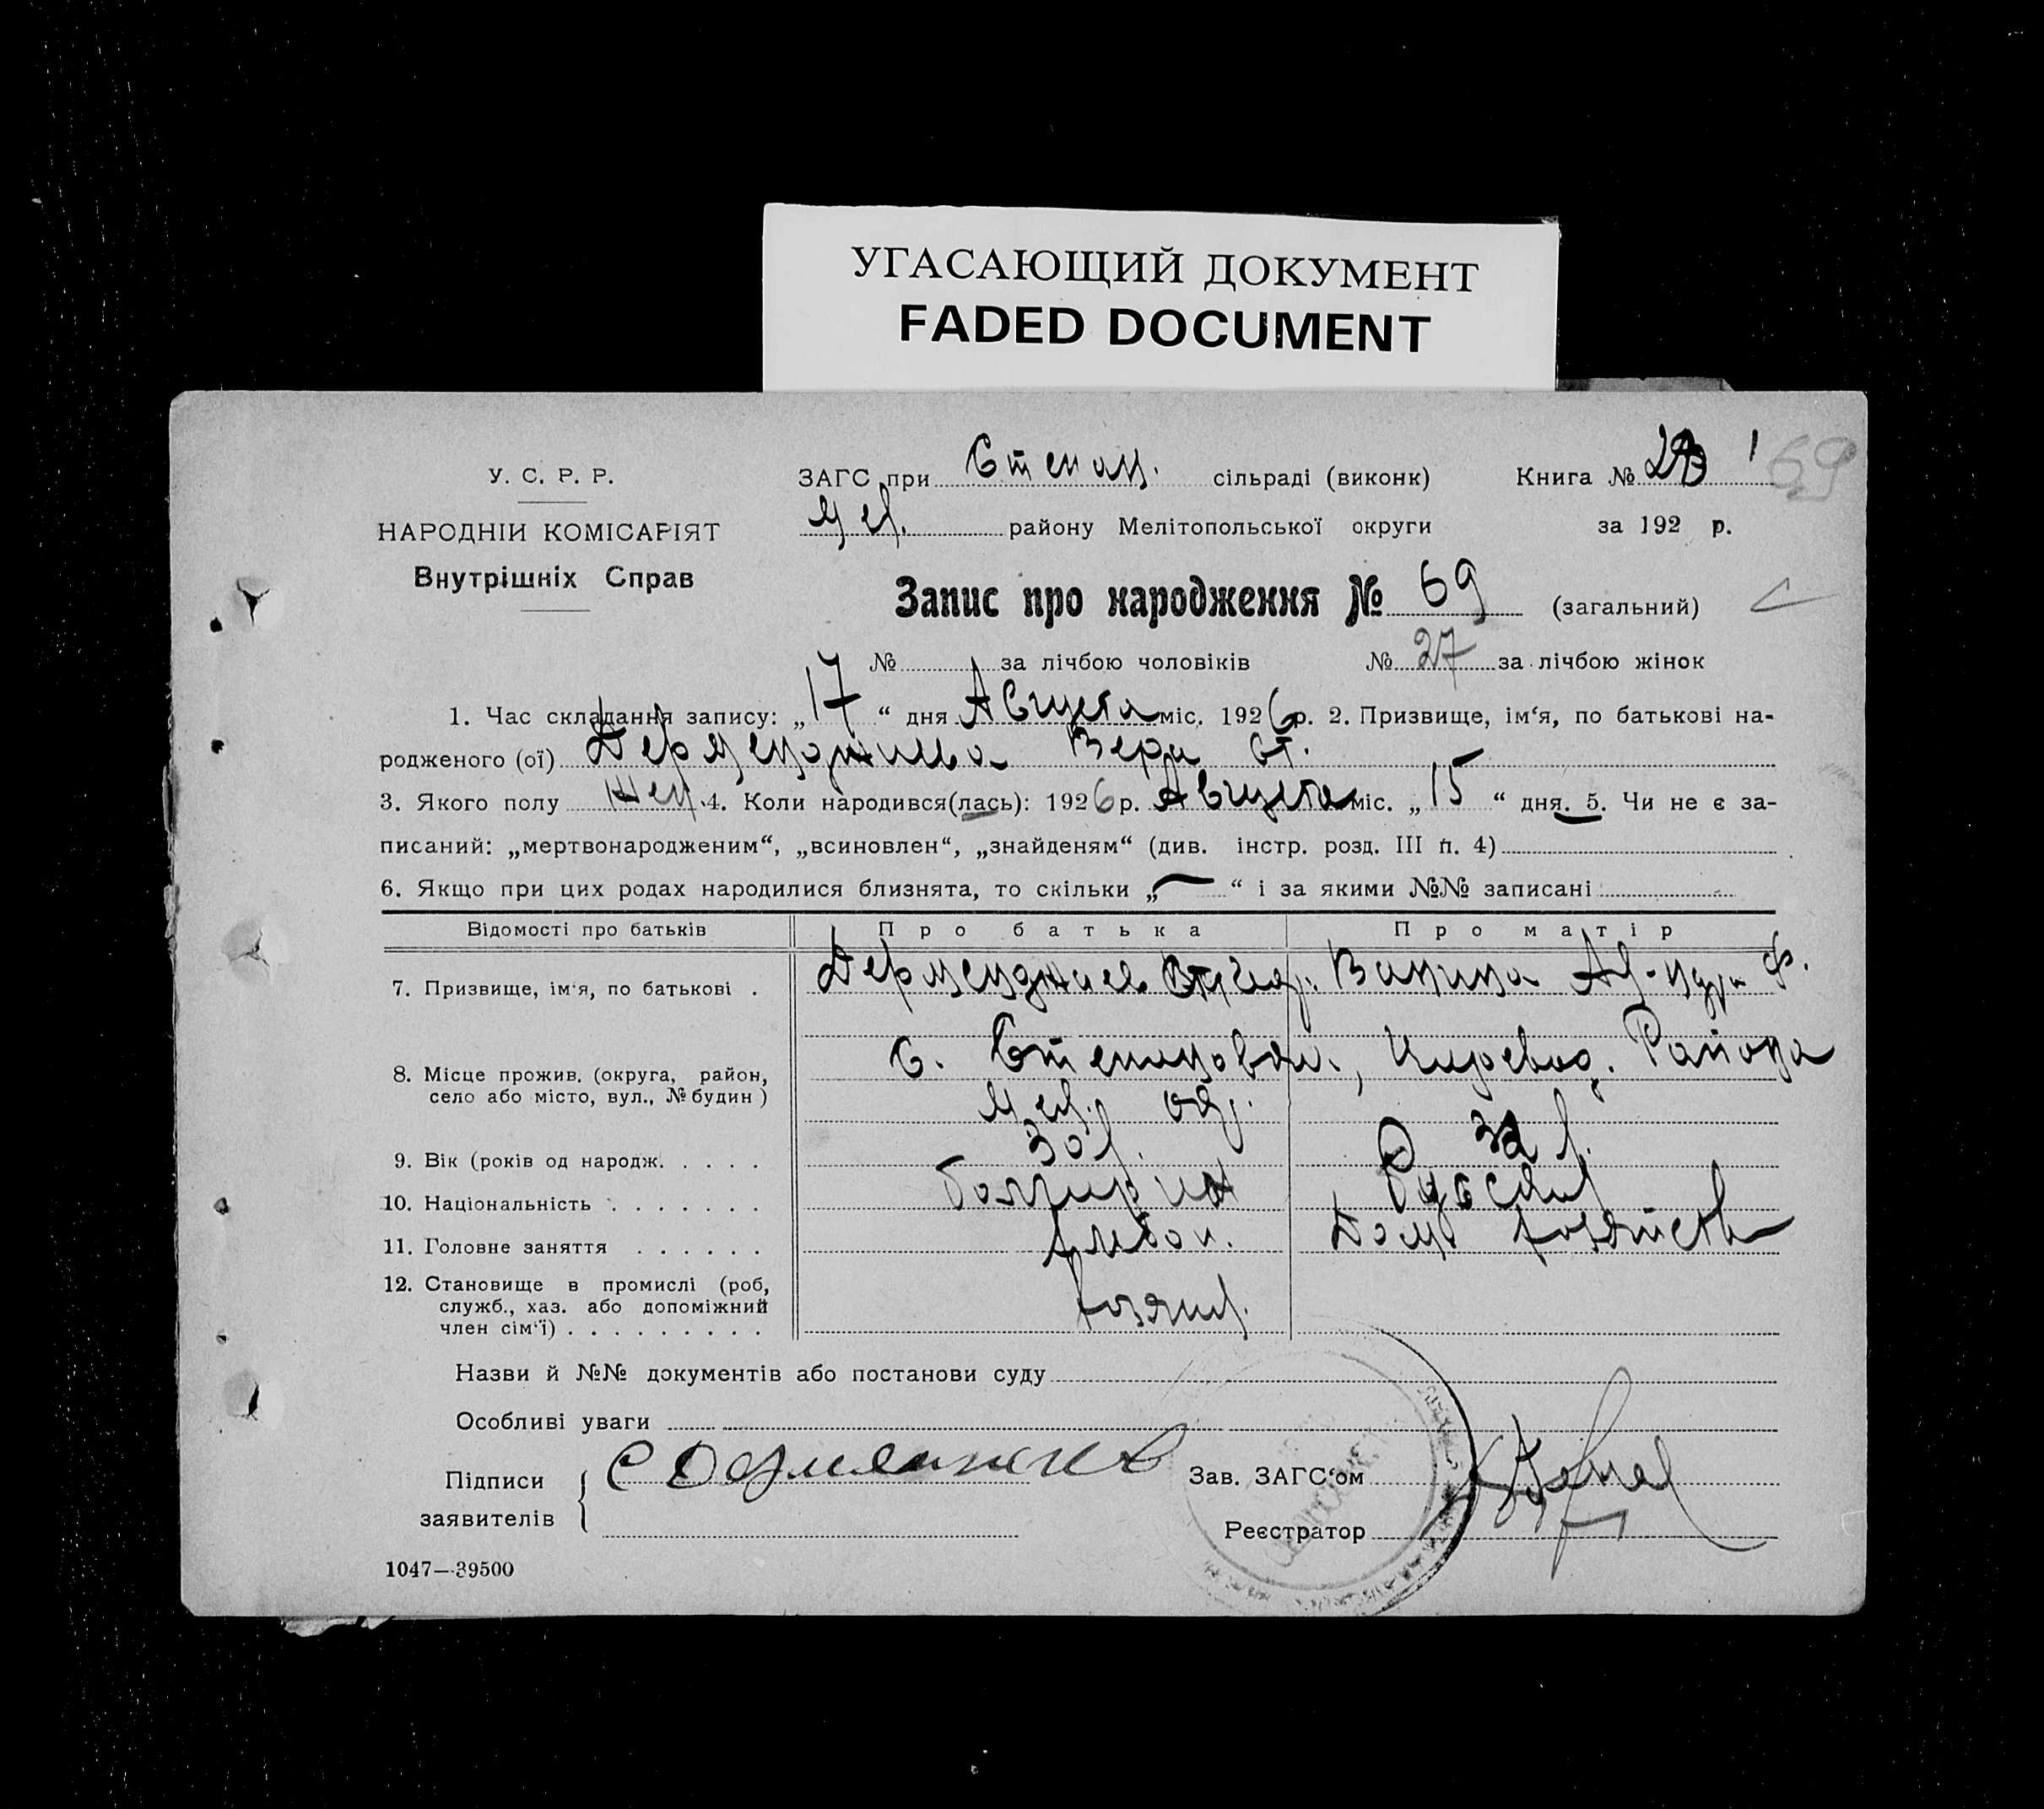 УГАСАЮЩИЙ ДОКУМЕНТ
FADED DOCUMENT
У. С. Р. Р.
НАРОДНІИ КОМІСАРІЯТ
Внутрішніх Справ
ЗАГС при Степан. сільраді (виконк) Книга № 69
Мел. району Мелітопольської округи за 192 р.
Запис про народження № 69 (загальний)
№ за лічбою чоловіків № 27 за лічбою жінок
1. Час складання запису: „17“ дня Августа міс. 1926 р. 2. Призвище, ім‘я, по батькові на-
родженого (ої) Дерменджиева Вера Ст.
3. Якого полу Жен. 4. Коли народився(лась): 1926 р. Августа міс. „15“ дня. 5. Чи не є за-
писаний: „мертвонародженим“, „всиновлен“, „знайденям“ (див. інстр. розд. III п. 4)
6. Якщо при цих родах народилися близнята, то скільки „—“ і за якими №№ записані
Відомості про батьків Про батька Про матір
7. Призвище, ім‘я, по батькові . Дерменджиев Ф.
8. Місце прожив. (округа, район, село або місто, вул., № будин) с. Степановка, Района
Мел. окр.
9. Вік (років од народж. . . . . 30 л. 32 л.
10. Національність . . . . . . . Болгарин
11. Головне заняття . . . . . . Хлебоп. Дом. хозяйство
12. Становище в промислі (роб, служб., хаз. або допоміжний член сім‘ї) . . . . . . . . . Хозяин
Назви й №№ документів або постанови суду
Особливі уваги
Підписи
заявителів
Зав. ЗАГС‘ом
Реєстратор
1047—39500